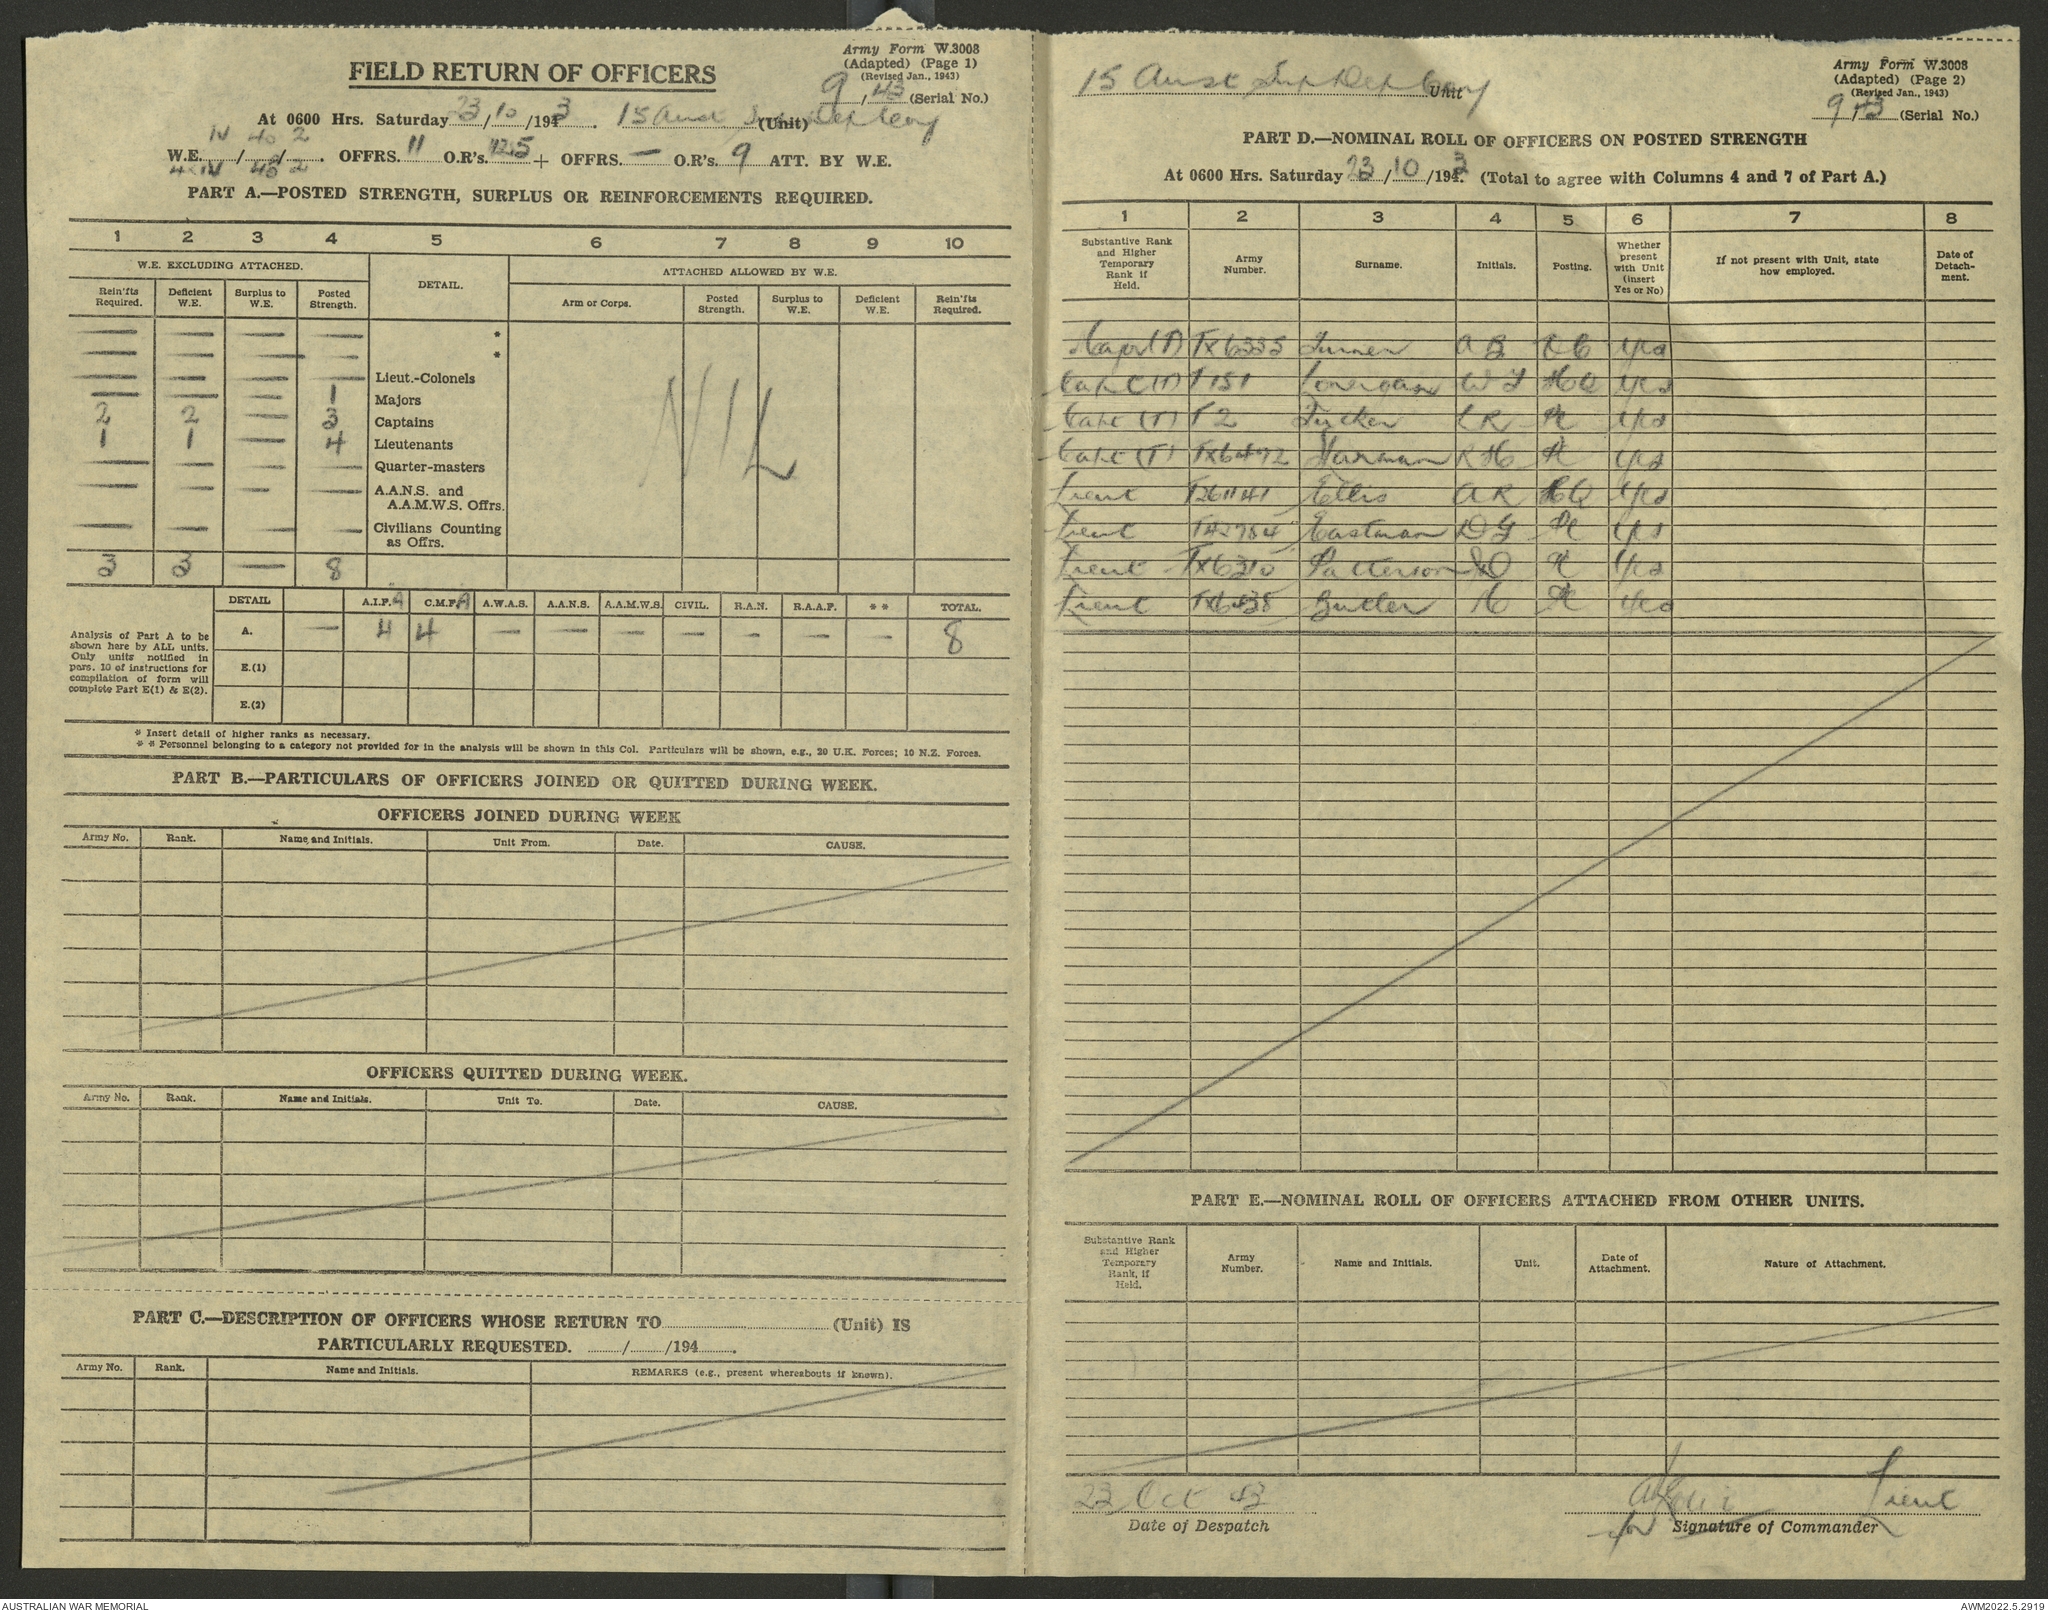 Army Form W.3008
(Adapted) (Page 1)
(Revised Jan., 1943)
FIELD RETURN OF OFFICERS
9/43 (Serial No.)
At 0600 Hrs. Saturday 23/10/1943. 15 Aust Sup Dep Coy (Unit)
IV 40 2
W.E. / / . OFFRS. 11 O.R's. 125 + OFFRS. — O.R's. 9 ATT. BY W.E.
IV 40 2
PART A.—POSTED STRENGTH, SURPLUS OR REINFORCEMENTS REQUIRED.
1 2 3 4 5 6 7 8 9 10
W.E. EXCLUDING ATTACHED. DETAIL. ATTACHED ALLOWED BY W.E.
Rein'fts Required. Deficient W.E. Surplus to W.E. Posted Strength. Arm or Corps. Posted Strength. Surplus to W.E. Deficient W.E. Rein'fts Required.
— — — — *
— — — — *
— — — — Lieut.-Colonels
— — — 1 Majors
2 2 — 3 Captains
1 1 — 4 Lieutenants
— — — — Quarter-masters
— — — — A.A.N.S. and A.A.M.W.S. Offrs.
— — — — Civilians Counting as Offrs.
3 3 — 8
NIL
DETAIL A.I.F. A C.M.F. A A.W.A.S. A.A.N.S. A.A.M.W.S. CIVIL. R.A.N. R.A.A.F. ** TOTAL.
Analysis of Part A to be shown here by ALL units. Only units notified in pars. 10 of instructions for compilation of form will complete Part E(1) & E(2).
A. — 4 4 — — — — — — — 8
E.(1)
E.(2)
* Insert detail of higher ranks as necessary.
** Personnel belonging to a category not provided for in the analysis will be shown in this Col. Particulars will be shown, e.g., 20 U.K. Forces; 10 N.Z. Forces.
PART B.—PARTICULARS OF OFFICERS JOINED OR QUITTED DURING WEEK.
OFFICERS JOINED DURING WEEK
Army No. Rank. Name and Initials. Unit From. Date. CAUSE.
OFFICERS QUITTED DURING WEEK.
Army No. Rank. Name and Initials. Unit To. Date. CAUSE.
PART C.—DESCRIPTION OF OFFICERS WHOSE RETURN TO (Unit) IS
PARTICULARLY REQUESTED. / /194 .
Army No. Rank. Name and Initials. REMARKS (e.g., present whereabouts if known).
15 Aust Sup Dep Coy Unit
Army Form W.3008
(Adapted) (Page 2)
(Revised Jan., 1943)
9/43 (Serial No.)
PART D.—NOMINAL ROLL OF OFFICERS ON POSTED STRENGTH
At 0600 Hrs. Saturday 23/10/1943. (Total to agree with Columns 4 and 7 of Part A.)
1 2 3 4 5 6 7 8
Substantive Rank and Higher Temporary Rank if Held. Army Number. Surname. Initials. Posting. Whether present with Unit (insert Yes or No) If not present with Unit, state how employed. Date of Detachment.
Major (T) TX6335 Turner A B OC yes
Capt (T) T151 Lonergan W J HQ yes
Capt (T) T2 Tucker L R Pl yes
Capt (T) TX6472 Harman R H Pl yes
Lieut T261141 Ellis A R HQ yes
Lieut T42784 Eastman D G Pl yes
Lieut TX6310 Patterson Pl yes
Lieut TX6438 Butler H Pl yes
PART E.—NOMINAL ROLL OF OFFICERS ATTACHED FROM OTHER UNITS.
Substantive Rank and Higher Temporary Rank, if Held. Army Number. Name and Initials. Unit. Date of Attachment. Nature of Attachment.
23 Oct 43 Lieut
Date of Despatch for Signature of Commander
AUSTRALIAN WAR MEMORIAL
AWM2022.5.2919